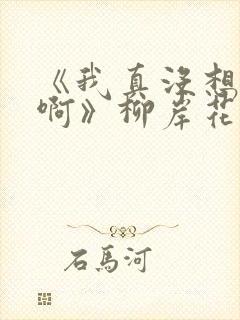 《我真没想
啊》柳岸花
石馬河